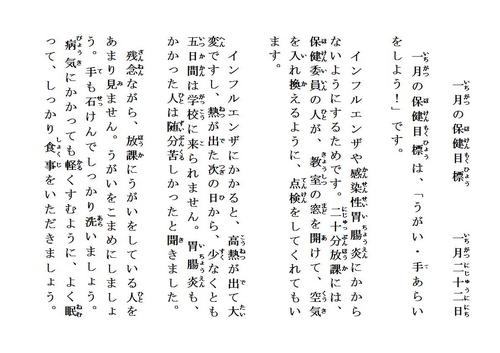 一月の保健目標　　一月二十二日
一月の保健目標は、「うがい・手あらい
をしよう！」です。
インフルエンザや感染性胃腸炎にかから
ないようにするためです。二十分放課には、
保健委員の人が、教室の窓を開けて、空気
を入れ換えるように、点検をしてくれてい
ます。
インフルエンザにかかると、高熱が出て大
変ですし、熱が出た次の日から、少なくとも
五日間は学校に来られません。胃腸炎も、
かかった人は随分苦しかったと聞きました。
残念ながら、放課にうがいをしている人を
あまり見ません。うがいをこまめにしましょ
う。手も石けんでしっかり洗いましょう。
病気にかかっても軽くすむように、よく眠
って、しっかり食事をいただきましょう。